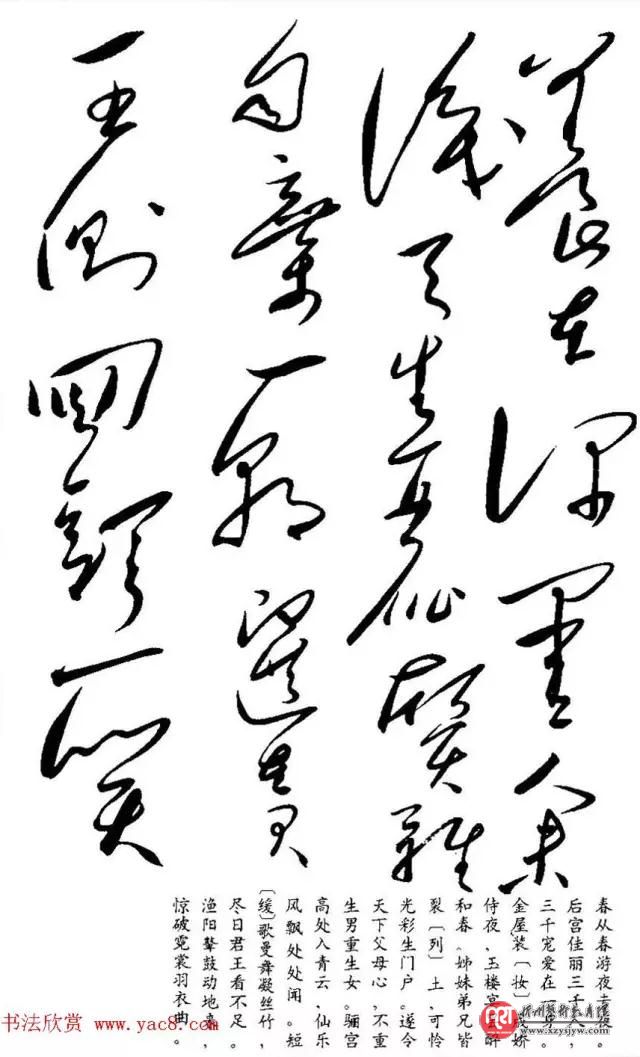 養在深閨人未
識天生麗質難
自棄一朝選在君
王側回眸一笑
春从春游夜专夜。
后宫佳丽三千人，
三千宠爱在一身。
金屋装〔妆〕成娇
侍夜，玉楼宴罢醉
和春。姊妹弟兄皆
裂〔列〕土，可怜
光彩生门户。遂令
天下父母心，不重
生男重生女。骊宫
高处入青云，仙乐
风飘处处闻。短
〔缓〕歌曼舞凝丝竹，
尽日君王看不足。
渔阳鼙鼓动地来，
惊破霓裳羽衣曲。
书法欣赏 www.yac8.com
徐州艺术教育网
www.xzysjyw.com